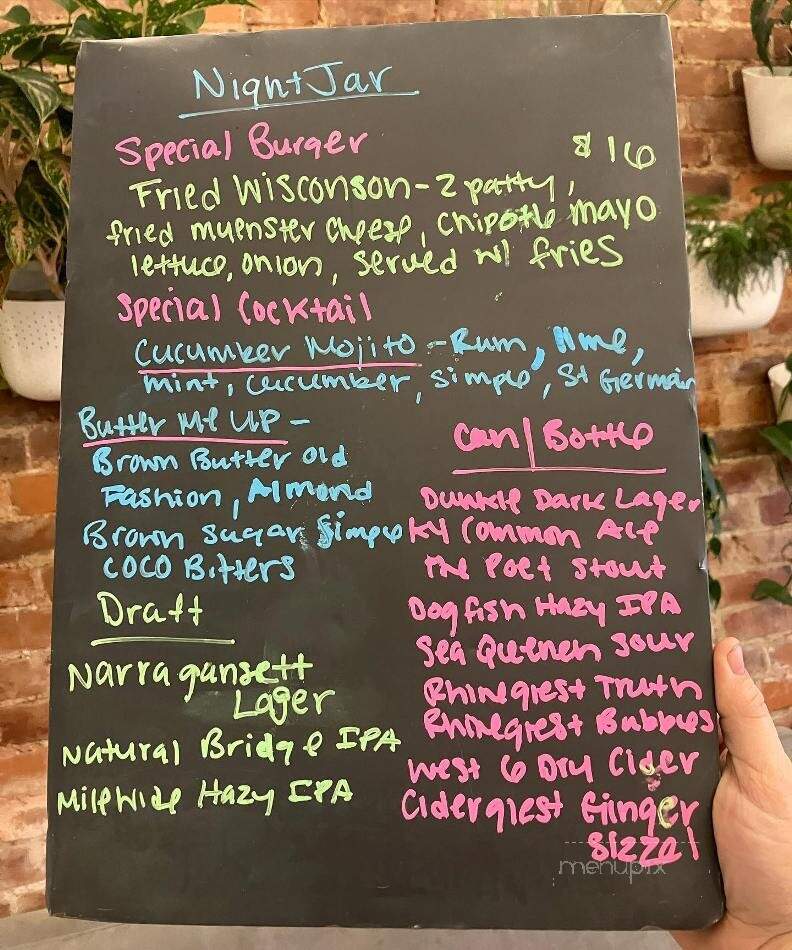 NightJar
Special Burger $16
Fried Wisconson - 2 patty,
fried muenster cheese, chipotle mayo
lettuce, onion, served w/ fries
Special Cocktail
Cucumber Mojito - Rum, lime,
mint, cucumber, simple, St Germain
Butter Me UP -
Brown Butter old
Fashion, Almond
Brown sugar Simple
COCO Bitters
Draft
Narragansett
Lager
Natural Bridge IPA
Milewide Hazy IPA
Can/Bottle
Dunkle Dark Lager
KY Common Ale
The Poet Stout
Dogfish Hazy IPA
Sea Quenen Sour
Rhinegiest Truth
Rhinegiest Bubbles
West 6 Dry Cider
Cidergiest Ginger
Sizzel
menupix